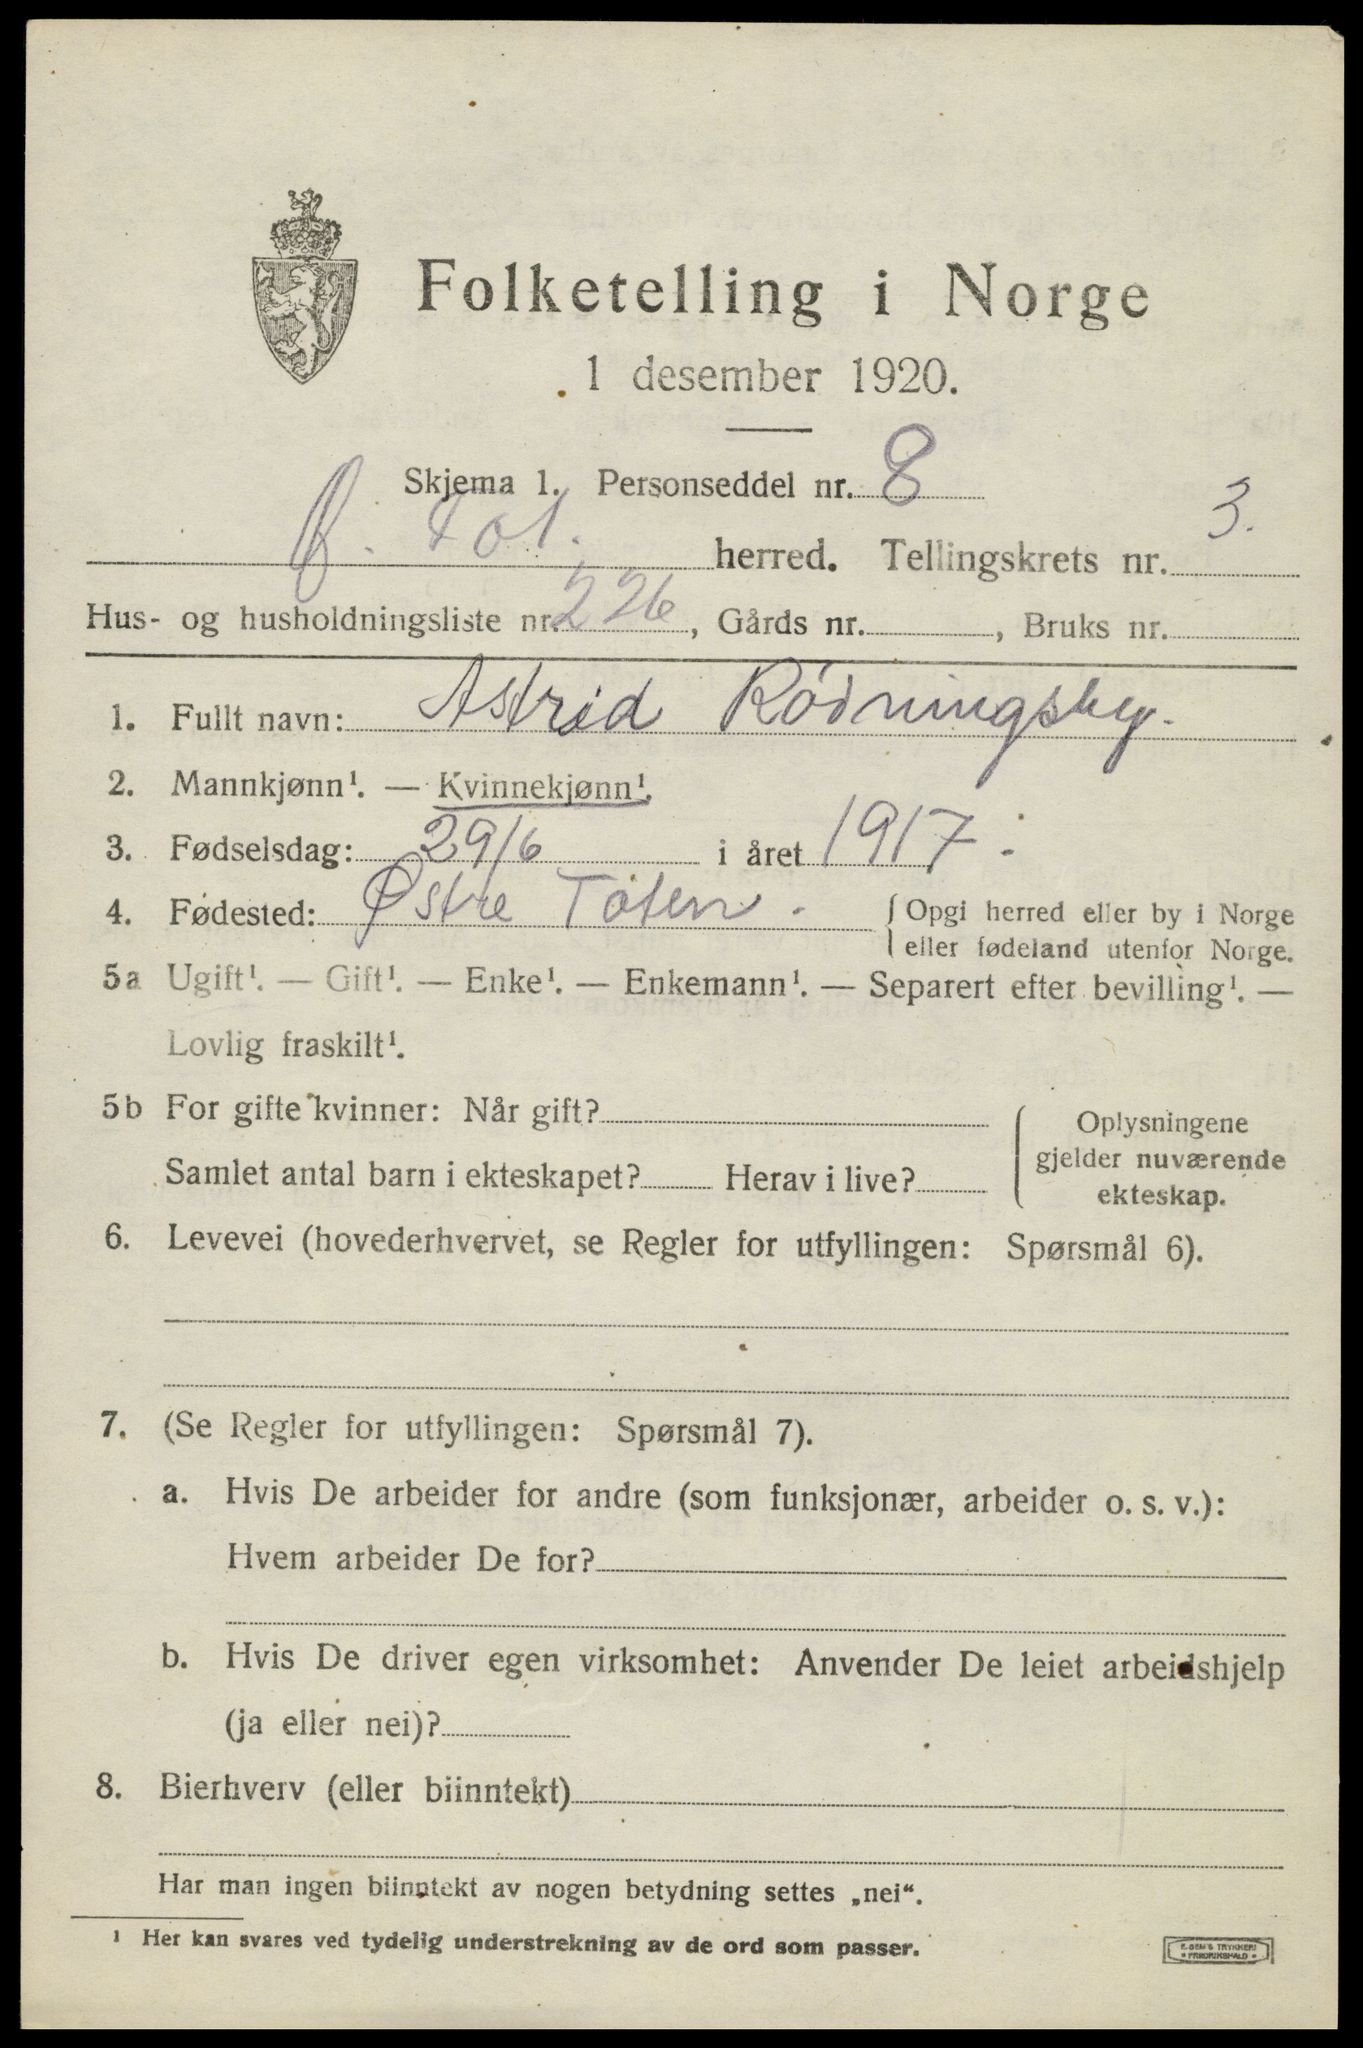 Folketelling i Norge
1 desember 1920.
Skjema 1. Personseddel nr. 8
Ø. Tot. herred. Tellingskrets nr. 3.
Hus- og husholdningsliste nr. 226, Gårds nr. , Bruks nr.
1. Fullt navn: Astrid Rödningsby.
2. Mannkjønn¹. — Kvinnekjønn¹.
3. Fødselsdag: 29/6 i året 1917.
4. Fødested: Østre Toten. { Opgi herred eller by i Norge
eller fødeland utenfor Norge.
5a Ugift¹. — Gift¹. — Enke¹. — Enkemann¹. — Separert efter bevilling¹. —
Lovlig fraskilt¹.
5b For gifte kvinner: Når gift?
Samlet antal barn i ekteskapet? Herav i live?
Oplysningene
gjelder nuværende
ekteskap.
6. Levevei (hovederhvervet, se Regler for utfyllingen: Spørsmål 6).
7. (Se Regler for utfyllingen: Spørsmål 7).
a. Hvis De arbeider for andre (som funksjonær, arbeider o. s. v.):
Hvem arbeider De for?
b. Hvis De driver egen virksomhet: Anvender De leiet arbeidshjelp
(ja eller nei)?
8. Bierhverv (eller biinntekt)
Har man ingen biinntekt av nogen betydning settes „nei“.
¹ Her kan svares ved tydelig understrekning av de ord som passer.
E. SEM'S TRYKKERI
FREDRIKSHALD